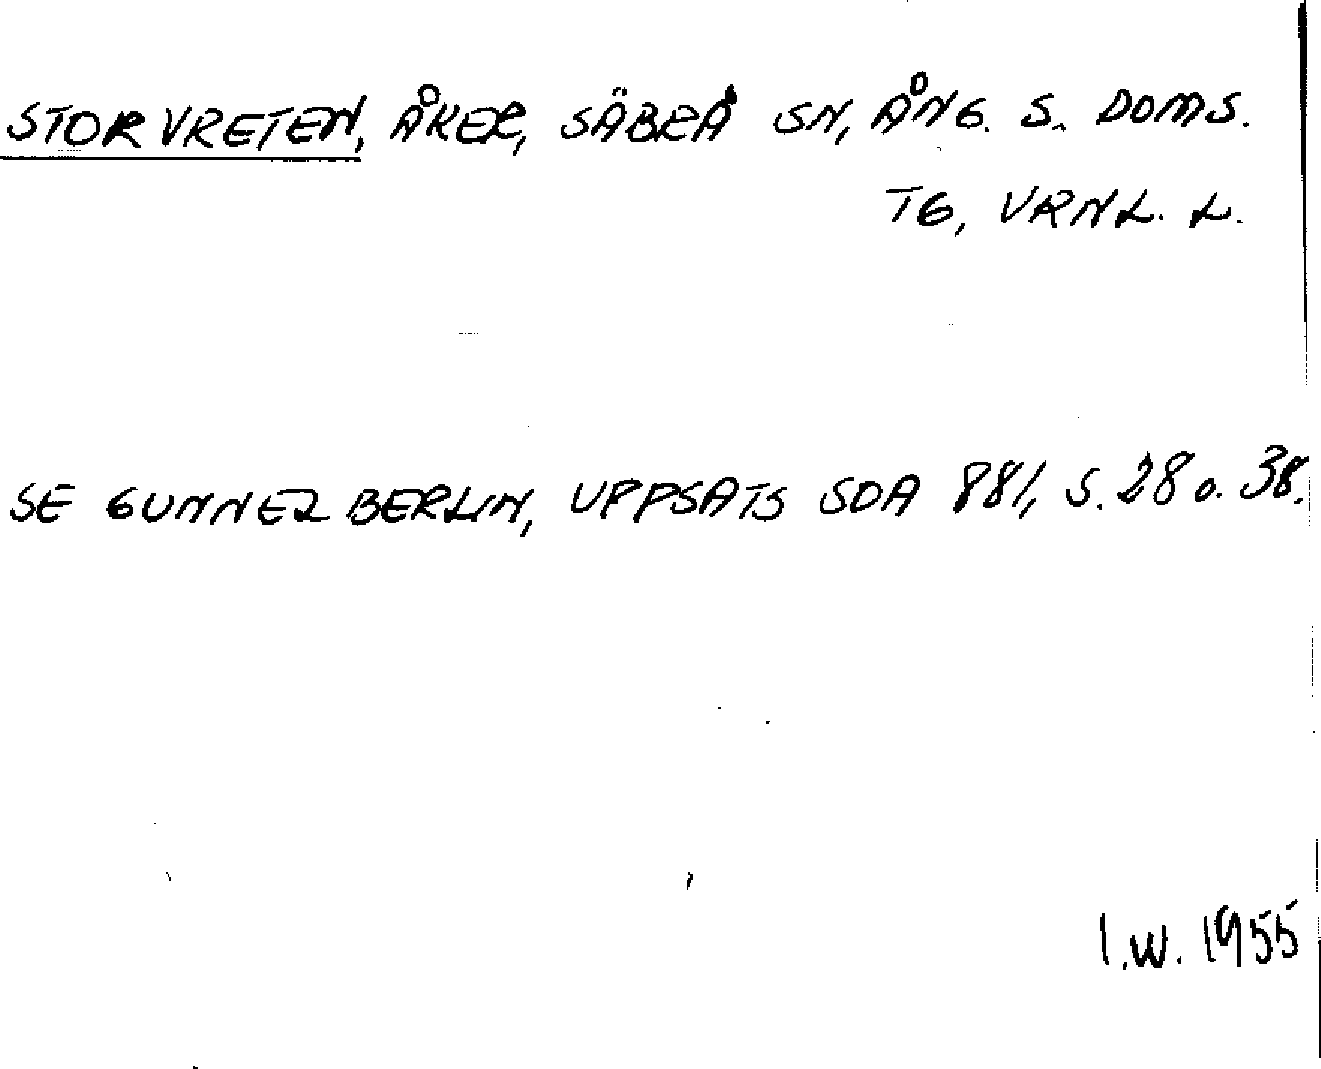 STORVRETEN, ÅKER, SÄBRÅ SN, ÅNG. S. DOMS.
TG, VRNL. L.
SE GUNNEL BERLIN, UPPSATS SOA 881, S. 28 o. 38.
I.W. 1955